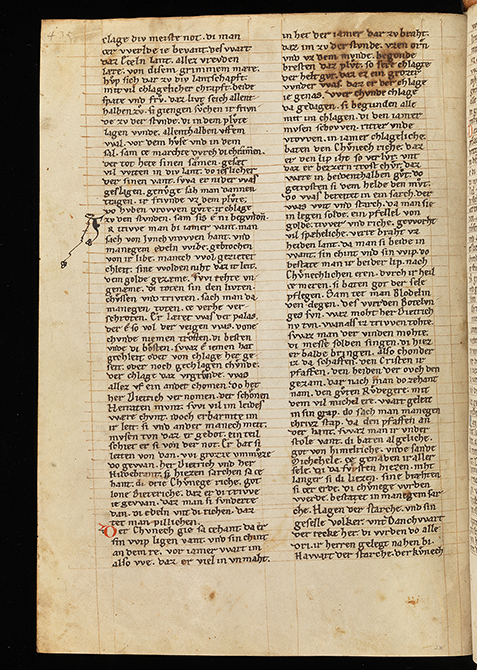 chlage div meiste not. di man
cer werlde ie bevant. des wart
daz Eceln lant. aller vreuden
lære. von disem grimmen mære.
hvp sich dar zv div lantschapft.
mit vil chlagelicher chrapft. beide
spate vnd frv. daz livt seich allent
halben zv. si giengen svchen ir frivn
de zv der stvnde. di in dem plvte
lagen vvnde. allenthalben vffem
wal. vor dem hvse vnd in dem
sal. sam ce marchte dvrch di chramen.
der tot hete sinen samen. gesæt
vil witen in div lant. do ieslicher
der sinen vant. swa er nider was
geslagen. genvge sah man dannen
tragen. ir frivnde vz dem plvte.
do hvben vrowen gvte. ir chlage
zv den stvnden. sam sis e ni begvnden.
triwe man hi iamer vant. man
sach von ivnch vrowen hant. vnd
manegen edeln wibe. gebrochen
von ir libe. manech wol gezieret
chleit. sine wolden niht daz ir leit.
vem golde gezæme.
genæme. di toten sin den livten.
chvssen vnd trivten. sach man da
manegen toten. ce verhe ver
schroten. Er læret was der palas.
der e so vol der veigen was. done
chvnde niemen trosten. di besten
vnde di bosten. swaz e iemen hat
gechleit oder von chlage her ge
seit. oder noch gechlagen chvnde.
der chlage daz vrgrvnde. was
allez vf ein ander chomen. do het
her Dietrich ver nomen. der schonen
Herraten mvnt. swi vil im leides
wære chvnt. idoch erbarmte im
ir leit. si vnd ander manech meit.
mvsen tvn daz er gebot. ein teil
schiet er si von der not. Er bat si
leiten von dan. vvi grozze vnmvze
do gewan. her Dietrich vnd her
Hildebrant. si hiezen sarchen sa ce
hant. di drie Chvnege riche. got
lone Dietriche. daz er di triwe
ie gewan. daz man si svnderte
dan. di edeln vnt di richen. daz
tet man pillichen.
Der Chvnech gie sa cehant. da er
sin wip ligen vant. vnd sin chint
an dem re. vor iamer wart im
also we. daz er viel in vnmaht.
in het der iamer dar zv braht.
daz im zv der stvnde. vz en orn
vnd vz dem mvnde. begonde
bresten daz plvt. so sere chlagte
der helt gvt. daz ez ein groziv
wnder was. daz er der chlage
ie genas. wer chvnde chlage
da gedagen. si begvnden alle
mit im chlagen. di den iamer
mvsen schowen. ritter vnde
vrowen. in iamer chlageliche.
baten den Chvnech riche. daz
er den lip iht so verlvr vnt
daz er bezzern trost chvr. daz
wære in beidenthalben gvt. do
getrosten si dem helde den mvt.
do was bereitet in ein sarch. der
was wit vnd starch. da man sie
in legen solde. ein pfellel von
golde. tiwer vnd riche. geworht
vil spæheliche. verre braht vz
heiden lant. da man si beide in
want. sin chint vnd sin wip. do
bestate man ir beider lip. nach
Chvnechlichen eren. dvrch ir heil
ce meren. si baten got der sele
pflegen. Sam tet man Blodelin
den degen. des vorden Botelun
ges svn. waz moht her Dietrich
nv tvn. wan als tz triwen tohte.
swaz man der vinden mohte.
di messe solden singen. di hiez
er balde bringen. also chonder
iz da schaffen. den Cristen ir
pfaffen. den heiden der ovch den
gezam. dar nach man do zehant
nam. den gvten Rvdegere. mit
dem vil michel ere. wart geleit
in sin grap. do sach man manegen
chrivz stap. da den pfaffen an
der hant. swaz man ir vnder
stole vant. di baten al geliche.
got von himelriche. vnde sande
Michahele. ce genaden ir aller
sele. vil da fvrsten hiezen. niht
langer si di liezen. sine bræhten
si cer erde. di chvnege wrden
werde. bestattet in manegem sar
che. Hagen der starche. vnd sin
geselle volker vnt Danchwart
der recke her. di wrden do alle
dri. ir herren gelegt nahen bi.
Hawart der starche. der kvnech